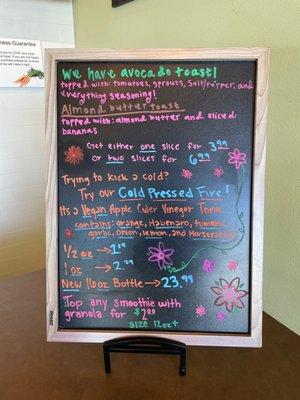 ness Guarantee
We have avocado toast!
topped with: tomatoes, sprouts, Salt/Pepper, and
everything seasoning!
Almond butter toast
topped with: almond butter and sliced
bananas
Get either one slice for 3.99
or two slices for 6.99
Trying to kick a cold?
Try our Cold Pressed Fire!
Its a Vegan Apple Cider Vinegar Tonic
contains: orange, Habenaro, tumeric,
garlic, Onion, lemon, and Horseradish
1/2 oz → 1.19
1 oz → 2.29
New 16oz Bottle → 23.99
Top any smoothie with
granola for $2.00
size 12oz+